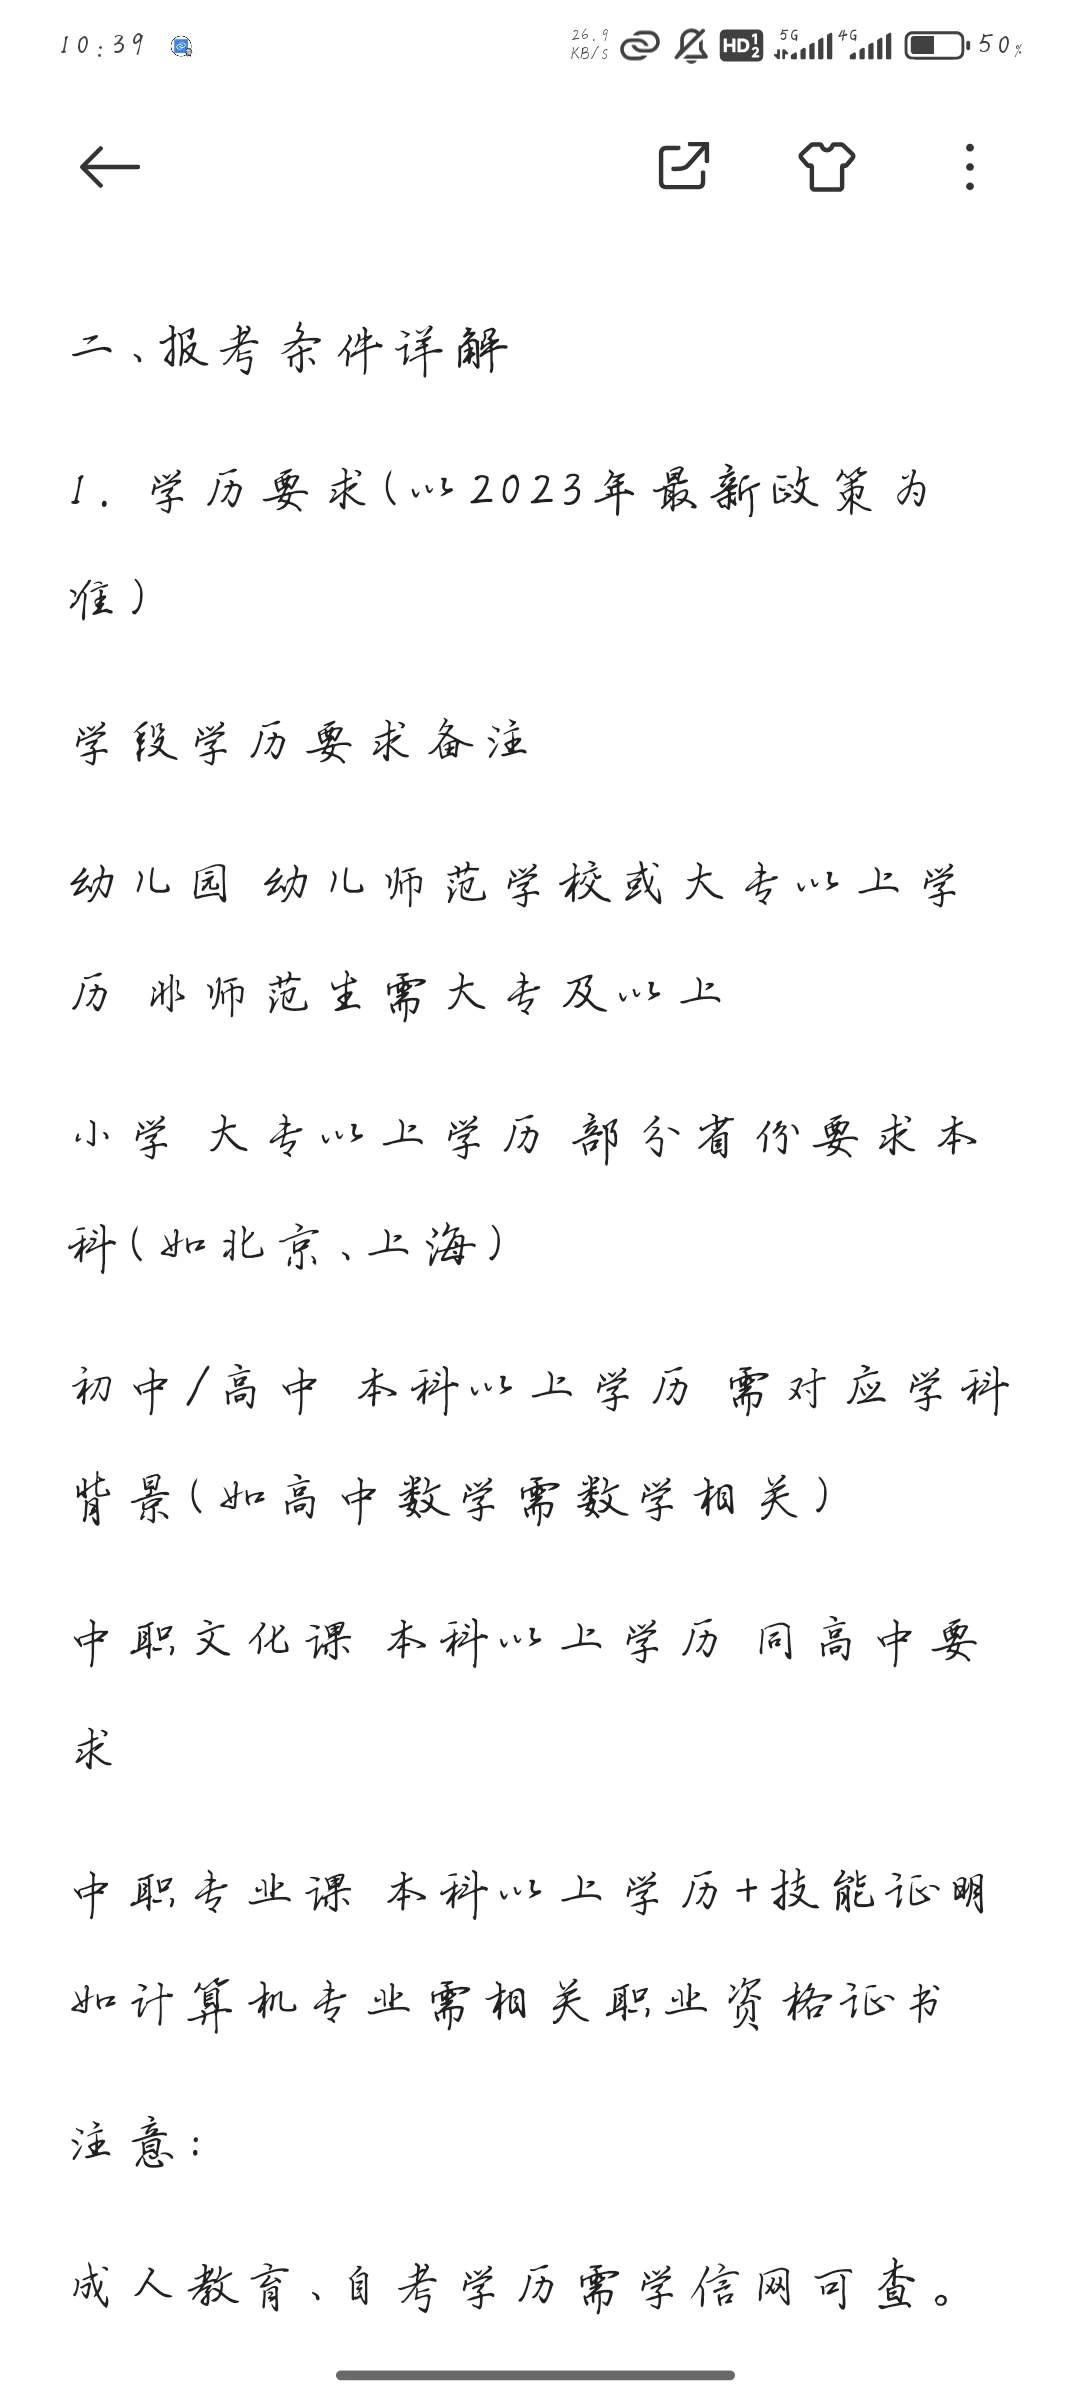 10:39
26.9 KB/S HD 1 2 5G 4G 50%
二、报考条件详解
1. 学历要求(以2023年最新政策为
准)
学段学历要求备注
幼儿园 幼儿师范学校或大专以上学
历 非师范生需大专及以上
小学 大专以上学历 部分省份要求本
科(如北京、上海)
初中/高中 本科以上学历 需对应学科
背景(如高中数学需数学相关)
中职文化课 本科以上学历 同高中要
求
中职专业课 本科以上学历+技能证明
如计算机专业需相关职业资格证书
注意:
成人教育、自考学历需学信网可查。